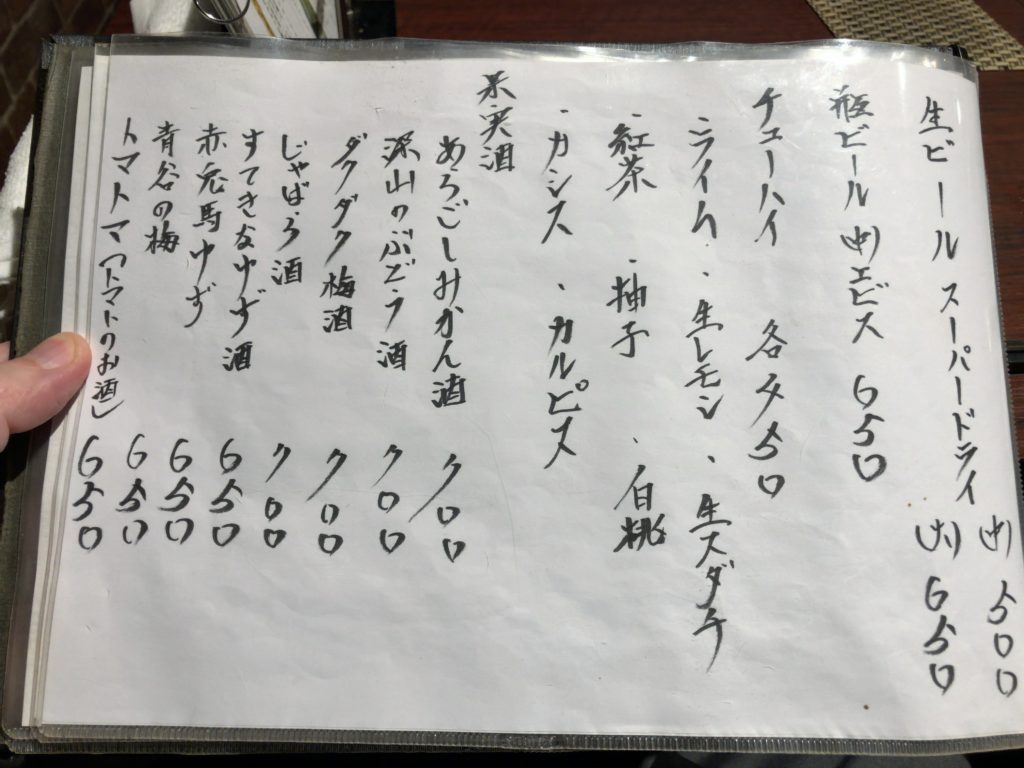 生ビール スーパードライ (中) 500
(大) 650
瓶ビール (中) エビス 650
チューハイ 各々450
・ライム ・生レモン ・生スダチ
・紅茶 ・柚子 ・白桃
・カシス ・カルピス
果実酒
あらごしみかん酒 700
深山のぶどう酒 700
ダクダク梅酒 700
じゃばら酒 700
すてきなゆず酒 650
赤兎馬ゆず 650
青谷の梅 650
トマトマ「トマトのお酒」 650